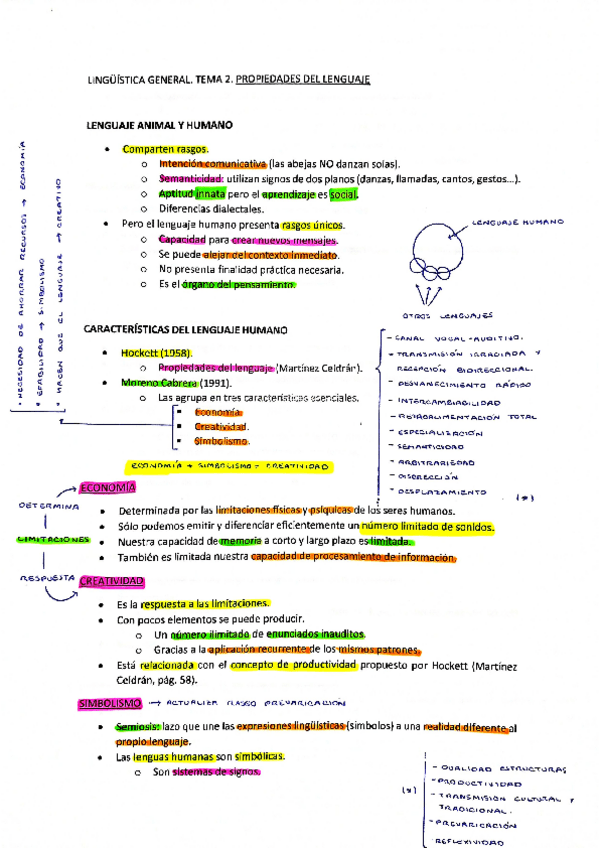 LINGÜÍSTICA GENERAL. TEMA 2. PROPIEDADES DEL LENGUAJE
LENGUAJE ANIMAL Y HUMANO
• Comparten rasgos.
o Intención comunicativa (las abejas NO danzan solas).
o Semanticidad: utilizan signos de dos planos (danzas, llamadas, cantos, gestos...).
o Aptitud innata pero el aprendizaje es social.
o Diferencias dialectales.
• Pero el lenguaje humano presenta rasgos únicos.
o Capacidad para crear nuevos mensajes.
o Se puede alejar del contexto inmediato.
o No presenta finalidad práctica necesaria.
o Es el órgano del pensamiento.
LENGUAJE HUMANO
OTROS LENGUAJES
• NECESIDAD DE AHORRAR RECURSOS → ECONOMÍA
• → SIMBOLISMO
• HACEN QUE EL LENGUAJE → CREATIVO
CARACTERÍSTICAS DEL LENGUAJE HUMANO
• Hockett (1958).
o Propiedades del lenguaje (Martínez Celdrán).
• Moreno Cabrera (1991).
o Las agrupa en tres características esenciales.
▪ Economía.
▪ Creatividad.
▪ Simbolismo.
- CANAL VOCAL-AUDITIVO.
- TRANSMISIÓN IRRADIADA Y
RECEPCIÓN BIDIRECCIONAL.
- DESVANECIMIENTO RÁPIDO
- INTERCAMBIABILIDAD
- RETROALIMENTACIÓN TOTAL
- ESPECIALIZACIÓN
- SEMANTICIDAD
- ARBITRARIEDAD
- DISCRECIÓN
- DESPLAZAMIENTO
(*)
ECONOMÍA + SIMBOLISMO = CREATIVIDAD
ECONOMÍA
DETERMINA
LIMITACIONES
RESPUESTA
• Determinada por las limitaciones físicas y psíquicas de los seres humanos.
• Sólo podemos emitir y diferenciar eficientemente un número limitado de sonidos.
• Nuestra capacidad de memoria a corto y largo plazo es limitada.
• También es limitada nuestra capacidad de procesamiento de información.
CREATIVIDAD
• Es la respuesta a las limitaciones.
• Con pocos elementos se puede producir.
o Un número ilimitado de enunciados inauditos.
o Gracias a la aplicación recurrente de los mismos patrones.
• Está relacionada con el concepto de productividad propuesto por Hockett (Martínez
Celdrán, pág. 58).
SIMBOLISMO → RASGO PREVARICACIÓN
• Semiosis: lazo que une las expresiones lingüísticas (símbolos) a una realidad diferente al
propio lenguaje.
• Las lenguas humanas son simbólicas.
o Son sistemas de signos.
(*)
- DUALIDAD ESTRUCTURAS
- PRODUCTIVIDAD
- TRANSMISIÓN CULTURAL Y
TRADICIONAL.
- PREVARICACIÓN
- REFLEXIVIDAD